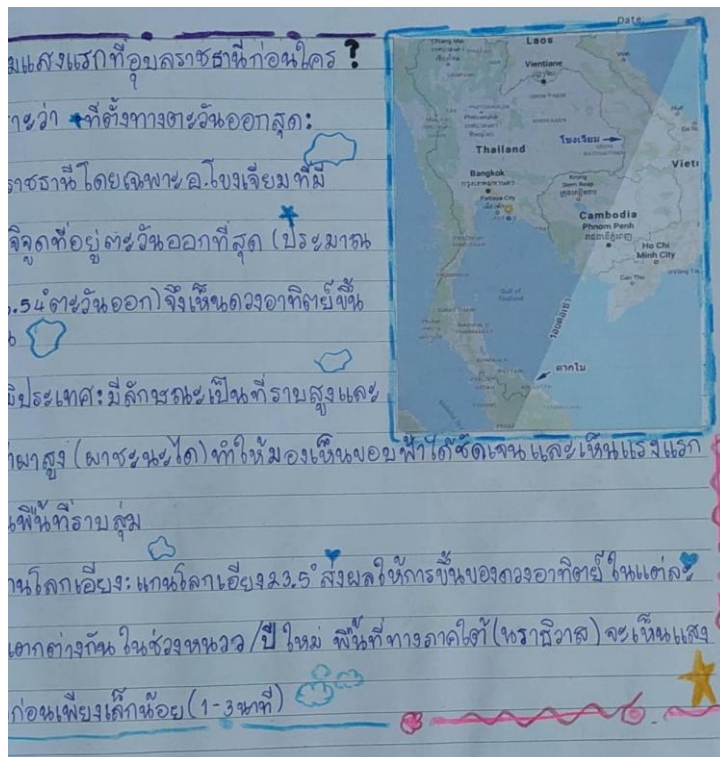 Date
มแสงแรกที่อุบลราชธานีก่อนใคร ?
าะว่า ที่ตั้งทางตะวันออกสุด:
ราชธานี โดยเฉพาะ อ.โขงเจียม ที่มี
จิจูดที่อยู่ตะวันออกที่สุด (ประมาณ
.54° ตะวันออก) จึงเห็นดวงอาทิตย์ขึ้น
ประเทศ: มีลักษณะเป็นที่ราบสูงและ
าผาสูง (ผาชะนะได) ทำให้มองเห็นขอบฟ้าได้ชัดเจน และเห็นแรงแรก
พื้นที่ราบลุ่ม
านโลกเอียง: แกนโลกเอียง 23.5° ส่งผลให้การขึ้นของดวงอาทิตย์ ในแต่ละ
แตกต่างกัน ในช่วงหนาว / ปีใหม่ พื้นที่ทางภาคใต้ (นราธิวาส) จะเห็นแสง
ก่อนเพียงเล็กน้อย (1-3 นาที)
Chiang Mai
Laos
Vientiane
โขงเจียม
Thailand
Bangkok
กรุงเทพมหานคร
Pattaya City
Krong Siem Reap
Cambodia
Phnom Penh
Ho Chi Minh City
Can Tho
Gulf of Thailand
รอยต่อเช้า
ตากใบ